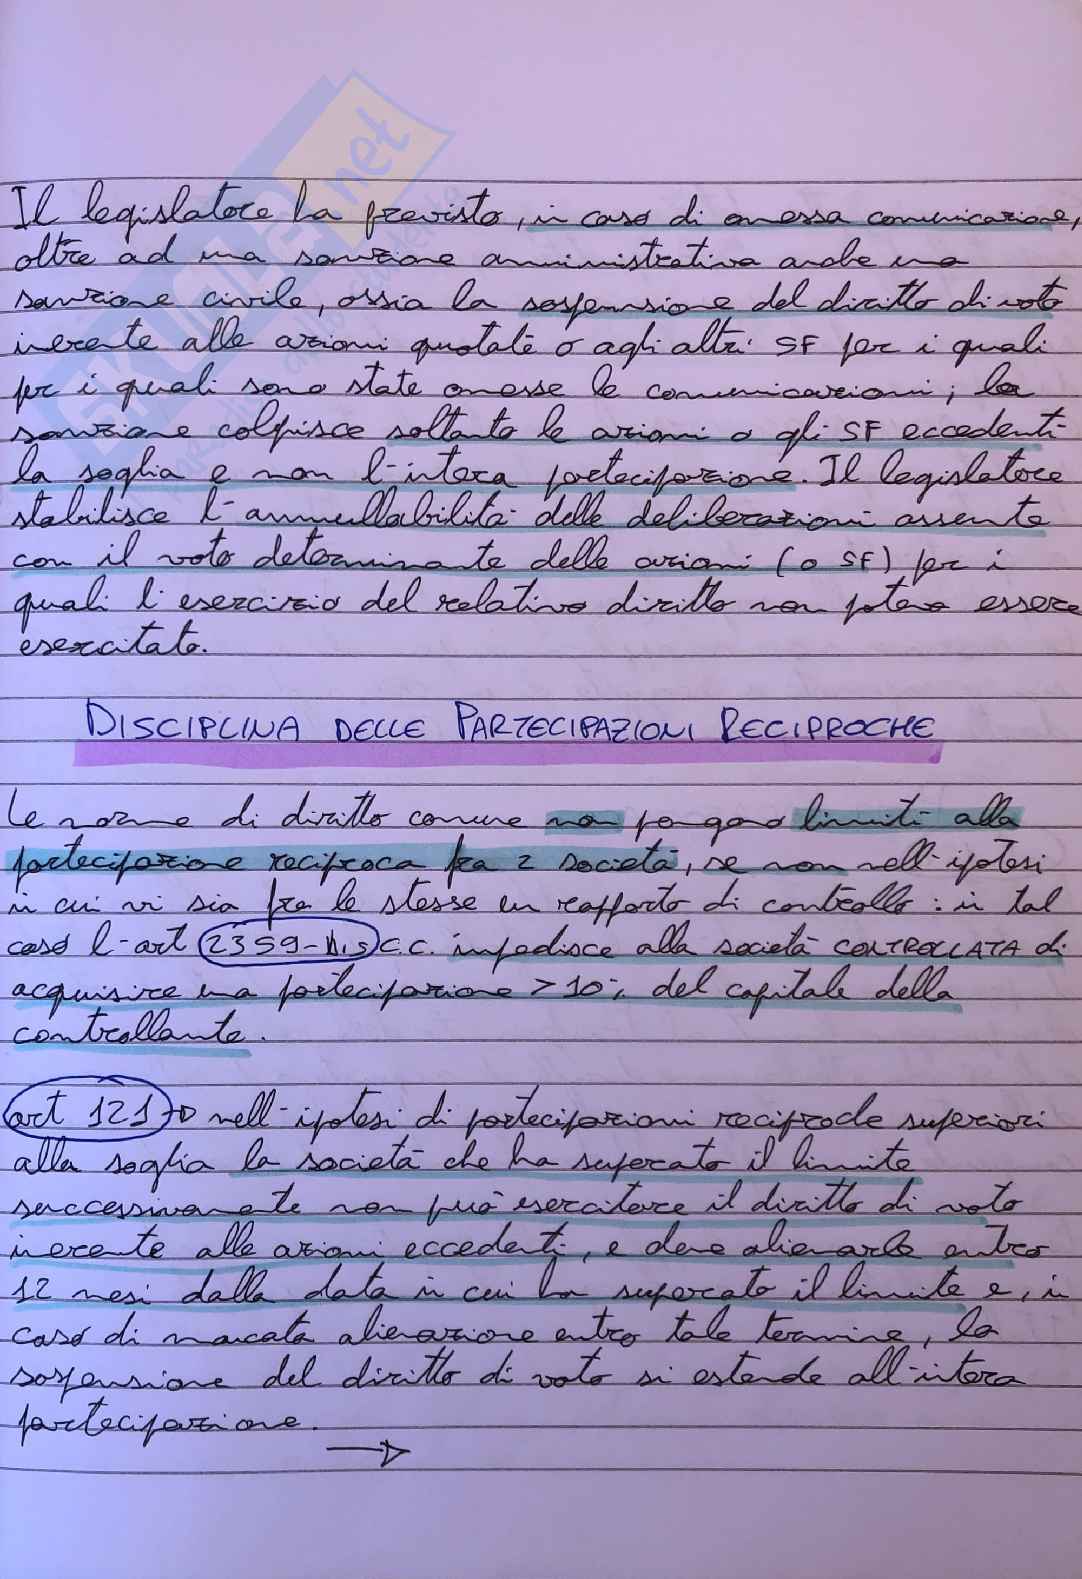 Il legislatore ha previsto, in caso di omessa comunicazione,
oltre ad una sanzione amministrativa anche una
sanzione civile, ossia la sospensione del diritto di voto
inerente alle azioni quotate o agli altri SF per i quali
per i quali sono state omesse le comunicazioni; la
sanzione colpisce soltanto le azioni o gli SF eccedenti
la soglia e non l'intera partecipazione. Il legislatore
stabilisce l'annullabilità delle deliberazioni assunte
con il voto determinante delle azioni (o SF) per i
quali l'esercizio del relativo diritto non poteva essere
esercitato.
DISCIPLINA DELLE PARTECIPAZIONI RECIPROCHE
Le norme di diritto comune non pongono limiti alla
partecipazione reciproca fra 2 società, se non nell'ipotesi
in cui vi sia fra le stesse un rapporto di controllo: in tal
caso l'art 2359-bis C.C. impedisce alla società CONTROLLATA di
acquisire una partecipazione > 10% del capitale della
controllante.
art 121 → nell'ipotesi di partecipazioni reciproche superiori
alla soglia la società che ha superato il limite
successivamente non può esercitare il diritto di voto
inerente alle azioni eccedenti, e deve alienarle entro
12 mesi dalla data in cui ha superato il limite e, in
caso di mancata alienazione entro tale termine, la
sospensione del diritto di voto si estende all'intera
partecipazione.
→